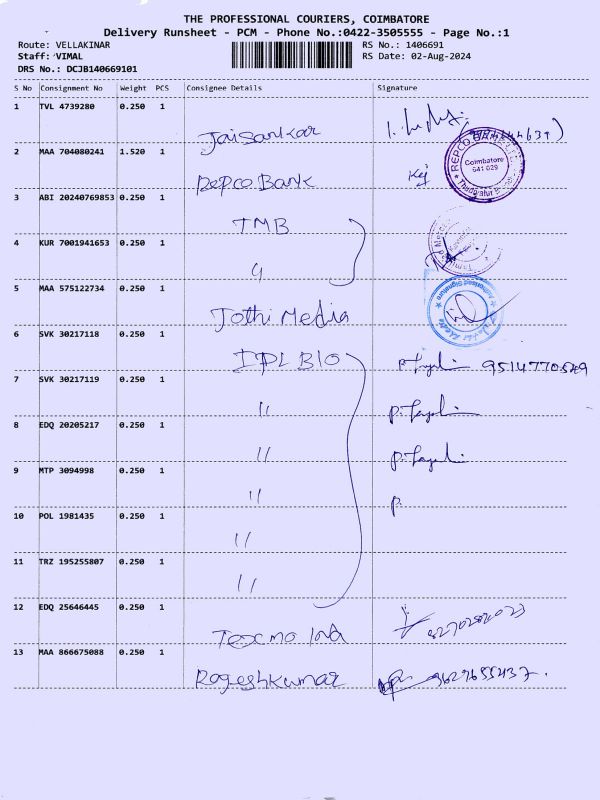 THE PROFESSIONAL COURIERS, COIMBATORE
Delivery Runsheet - PCM - Phone No.:0422-3505555 - Page No.:1
Route: VELLAKINAR RS No.: 1406691
Staff: VIMAL RS Date: 02-Aug-2024
DRS No.: DCJB140669101
S No Consignment No Weight PCS Consignee Details Signature
1 TVL 4739280 0.250 1
Jaisankar
2 MAA 704080241 1.520 1
REPCO BANK LTD.
Coimbatore
641 029
Repco Bank
3 ABI 20240769853 0.250 1
TMB
4 KUR 7001941653 0.250 1
"
5 MAA 575122734 0.250 1
Jothi Media
Authorised Signature
6 SVK 30217118 0.250 1
IPL BIO
7 SVK 30217119 0.250 1
"
8 EDQ 20205217 0.250 1
"
9 MTP 3094998 0.250 1
" P
10 POL 1981435 0.250 1
"
11 TRZ 195255807 0.250 1
"
12 EDQ 25646445 0.250 1
Texmo Ind
13 MAA 866675088 0.250 1
Rogeshkumar 9629655437.